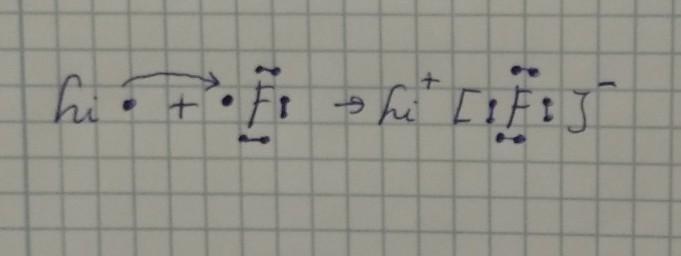 Li• + •F: → Li⁺ [:F:]⁻